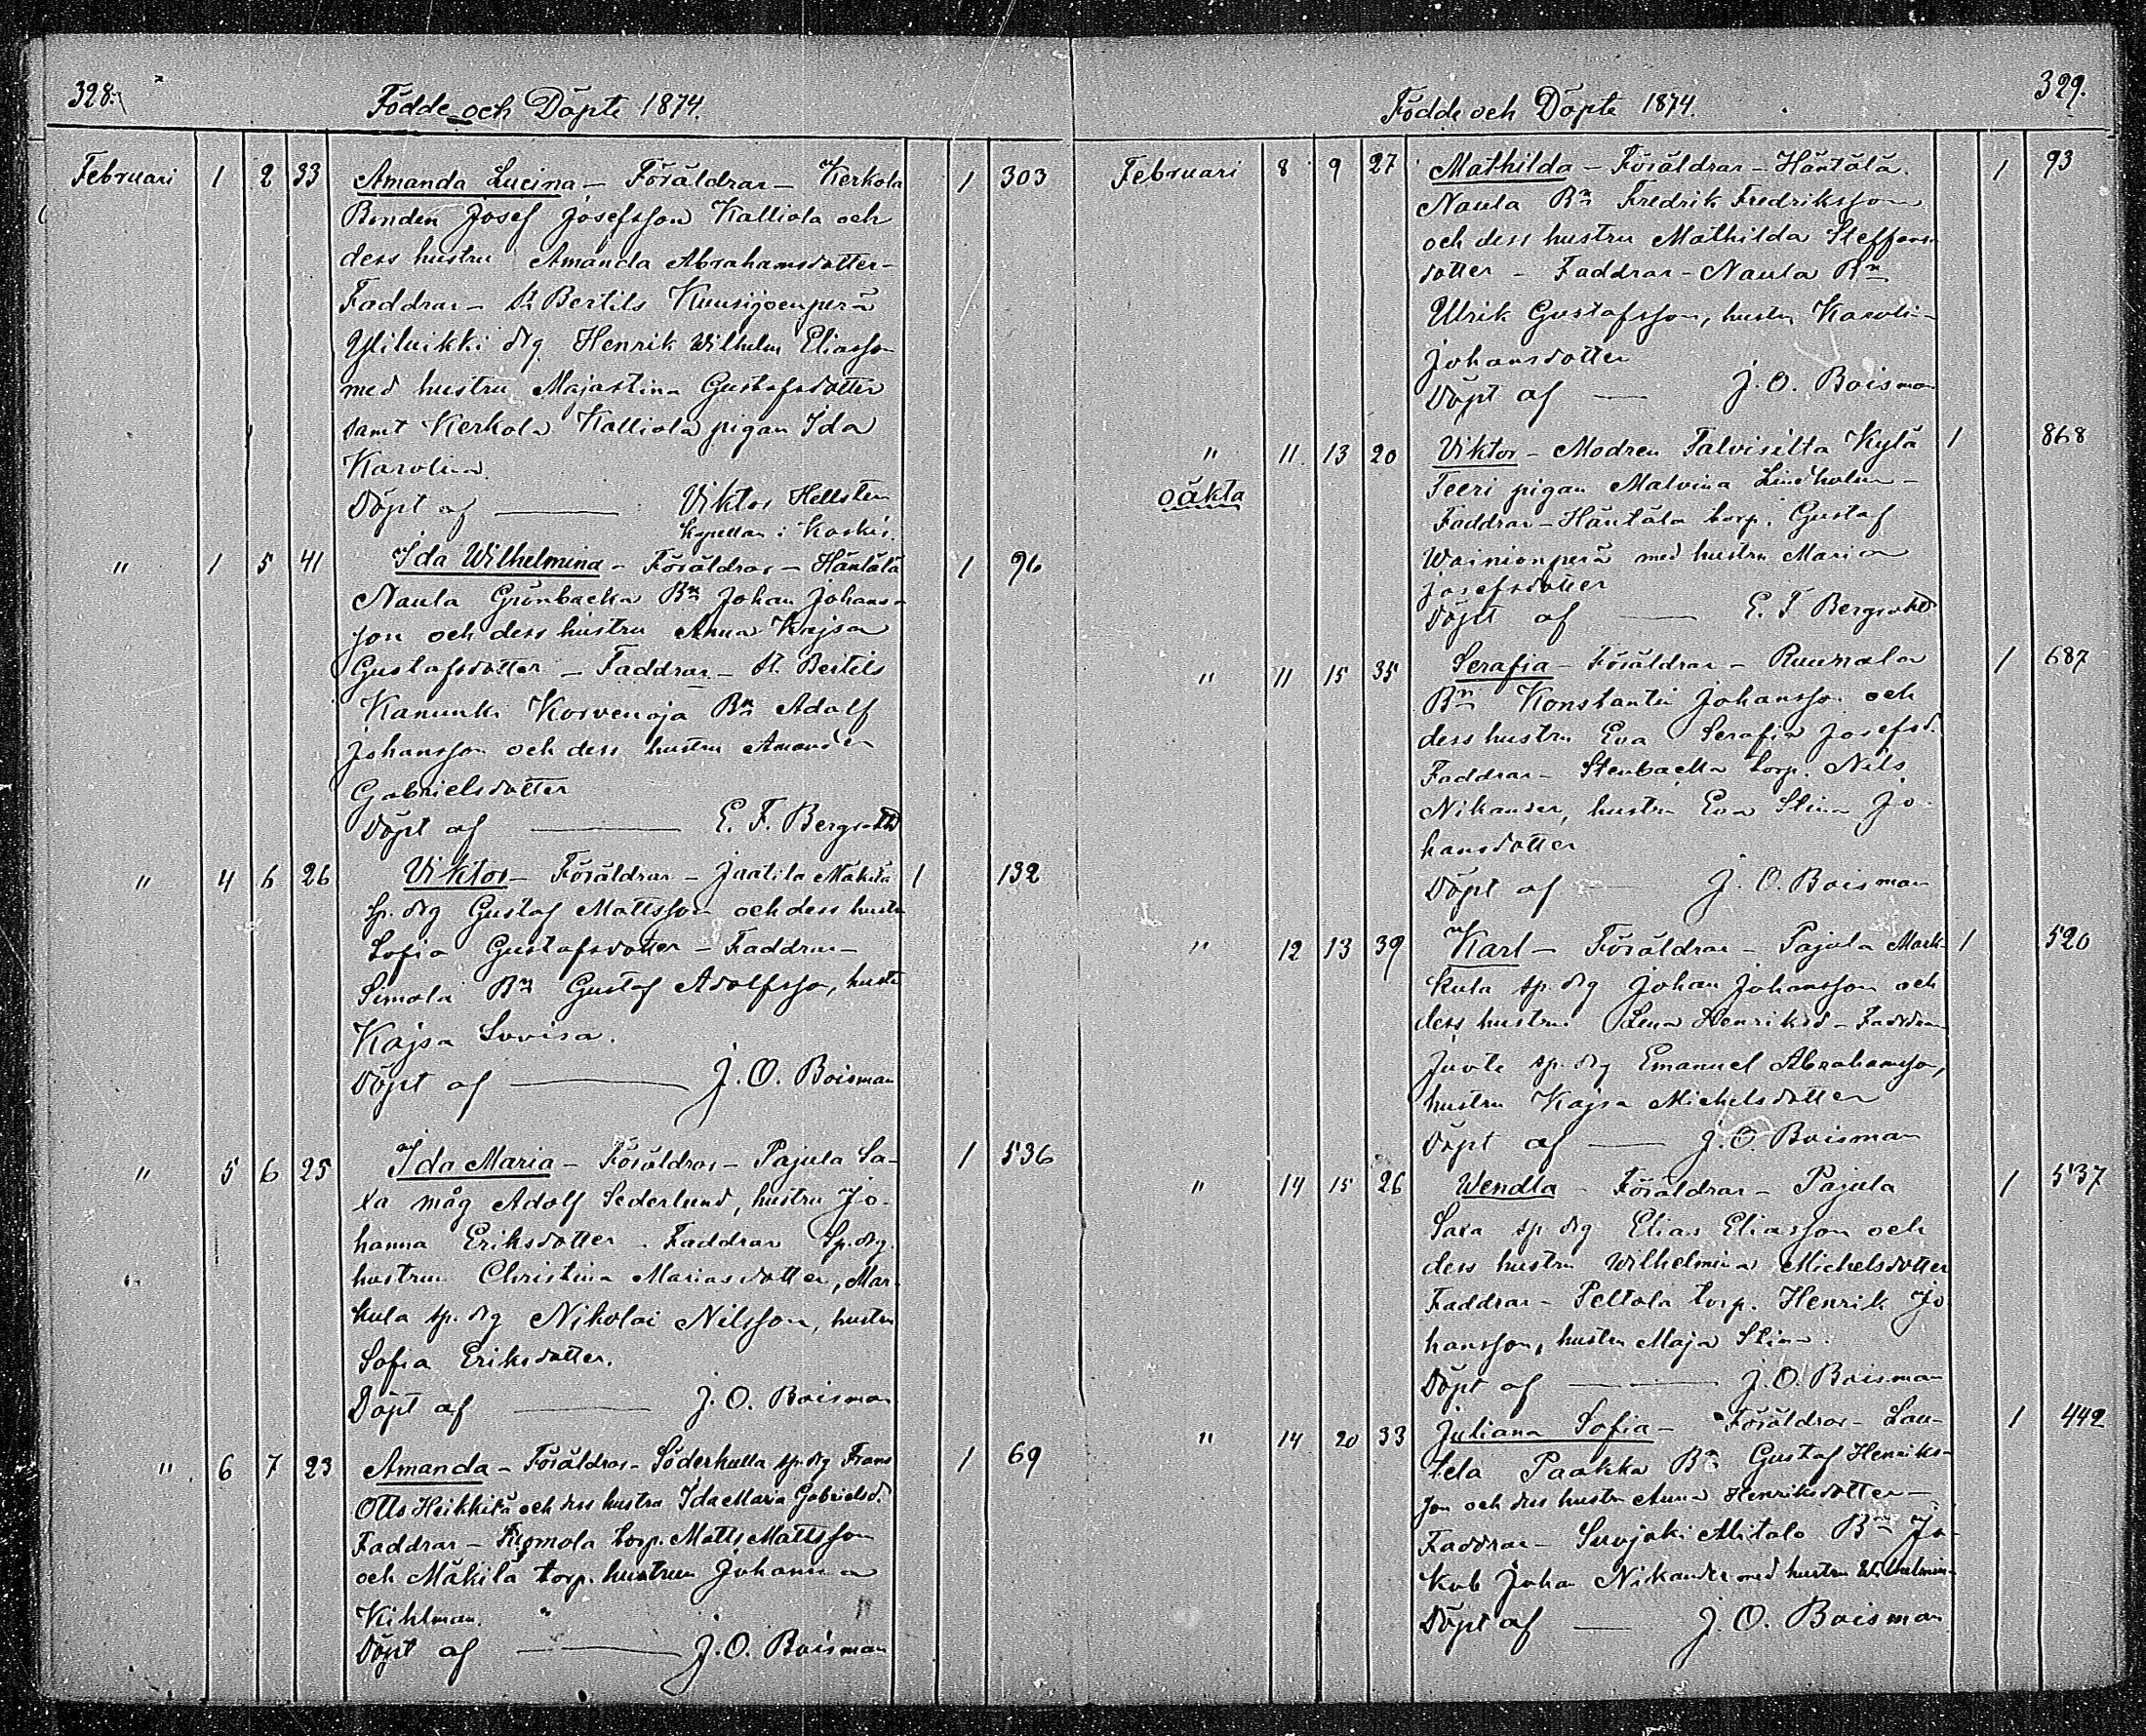 328.
Födde och Döpte 1874.
Februari 1 2 33 Amanda Lucina – Föräldrar – Kerkola 1 303
Bonden Josef Josefsson Kalliola och
dess hustru Amanda Abrahamsdotter –
Faddrar – St Bertils Kuusijoenperä
Yliluikki drg Henrik Wilhelm Eliasson
med hustru Majastina Gustafsdotter
samt Kerkola Kalliola pigan Ida
Karolina
Döpt af — Viktor Hellsten
Kapellan i Koskis.
" 1 5 41 Ida Wilhelmina – Föräldrar – Häntälä 1 96
Naula Grönbacka Bn Johan Johans-
son och dess hustru Anna Kajsa
Gustafsdotter – Faddrar – St. Bertils
Kanunki Korvenoja Bn Adolf
Johansson och dess hustru Amanda
Gabrielsdotter
Döpt af — E. F. Bergroth
" 4 6 26 Viktor – Föräldrar – Jaatila Mäkilä 1 132
sp. drg Gustaf Mattsson och dess hustru
Sofia Gustafsdotter – Faddrar –
Bn Gustaf Adolfsson, hustru
Kajsa Lovisa.
Döpt af — J. O. Boisman
" 5 6 25 Ida Maria – Föräldrar – Pajula Sa- 1 536
xa måg Adolf Sederlund, hustru Jo-
hanna Eriksdotter – Faddrar Sp. drg.
" hustrun Christina Mariasdotter, Mar-
kula sp. drg Nikolai Nilsson, hustru
Sofia Eriksdotter.
Döpt af — J. O. Boisman
" 6 7 23 Amanda – Föräldrar – Söderkulla sp. drg Frans 1 69
Otto Heikkilä och dess hustru Ida Maria Gabrielsd.
Faddrar – torp. Matts Mattsson
och Mäkilä torp. hustrun Johanna
Kihlman.
Döpt af — J. O. Boisman
329.
Födde och Döpte 1874.
Februari 8 9 27 Mathilda – Föräldrar – Häntälä. 1 93
Naula Bn Fredrik Fredriksson
och dess hustru Mathilda Steffans-
dotter – Faddrar – Naula Bn
Ulrik Gustafsson, hustru Karolin
Johansdotter
Döpt af — J. O. Boisman
" 11 13 20 Viktor – Modren Talvisilta Kylä 1 868
oäkta
Teeri pigan Malvina Lindholm –
Faddrar – Häntälä torp. Gustaf
Wainionperä med hustru Maria
Josefsdotter
Döpt af — E. F. Bergroth
" 11 15 35 Serafia – Föräldrar – Ruunala 1 687
Bn Konstantin Johansson och
dess hustru Eva Serafia Josefsd.
Faddrar – Stenbacka torp. Nils
Nikander, hustru Eva Stina Jo-
hansdotter
Döpt af — J. O. Boisman
" 12 13 39 Karl – Föräldrar – Pajula Mark- 1 520
kula sp. drg Johan Johansson och
dess hustru Lena Henriksd – Faddrar
Juvte sp. drg Emanuel Abrahamsson,
hustru Kajsa Michelsdotter
Döpt af — J. O. Boisman
" 14 15 26 Wendla – Föräldrar – Pajula 1 537
Saxa sp drg Elias Eliasson och
dess hustru Wilhelmina Michelsdotter
Faddrar – Peltola torp. Henrik Jo
hansson, hustru Maja Stina.
Döpt af — J. O. Boisman
" 14 20 33 Juliana Sofia – Föräldrar – Lau- 1 442
tela Paakka Bn Gustaf Henriks-
son och dess hustru Anna Henriksdotter –
Faddrar – Suojoki Alitalo Bn Ja-
kob Johan Nikander med hustru Wilhelmina
Döpt af — J. O. Boisman